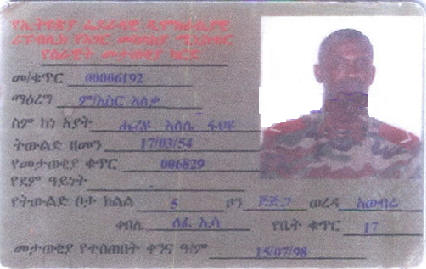 የኢትዮጵያ ፌደራላዊ ዲሞክራሲያዊ
ሪፐብሊክ የአገር መከላከያ ሚኒስቴር
የሰራዊት መታወቂያ ካርድ
መ/ቁጥር 00006192
ማዕረግ ም/አስር አለቃ
ስም ከነ አያት
ትውልድ ዘመን 17/03/54
የመታወቂያ ቁጥር 006829
የደም ዓይነት
የትውልድ ቦታ ክልል 5 ዞን ጅጅጋ ወረዳ አውበሬ
ቀበሌ የቤት ቁጥር 17
መታወቂያ የተሰጠበት ቀንና ዓ/ም 15/07/98